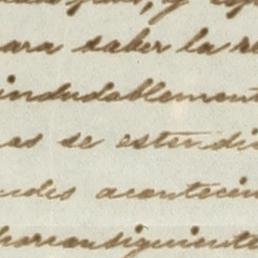 para saber la re
indudablement
as se estendi
ndes acontecim
por consiguiente